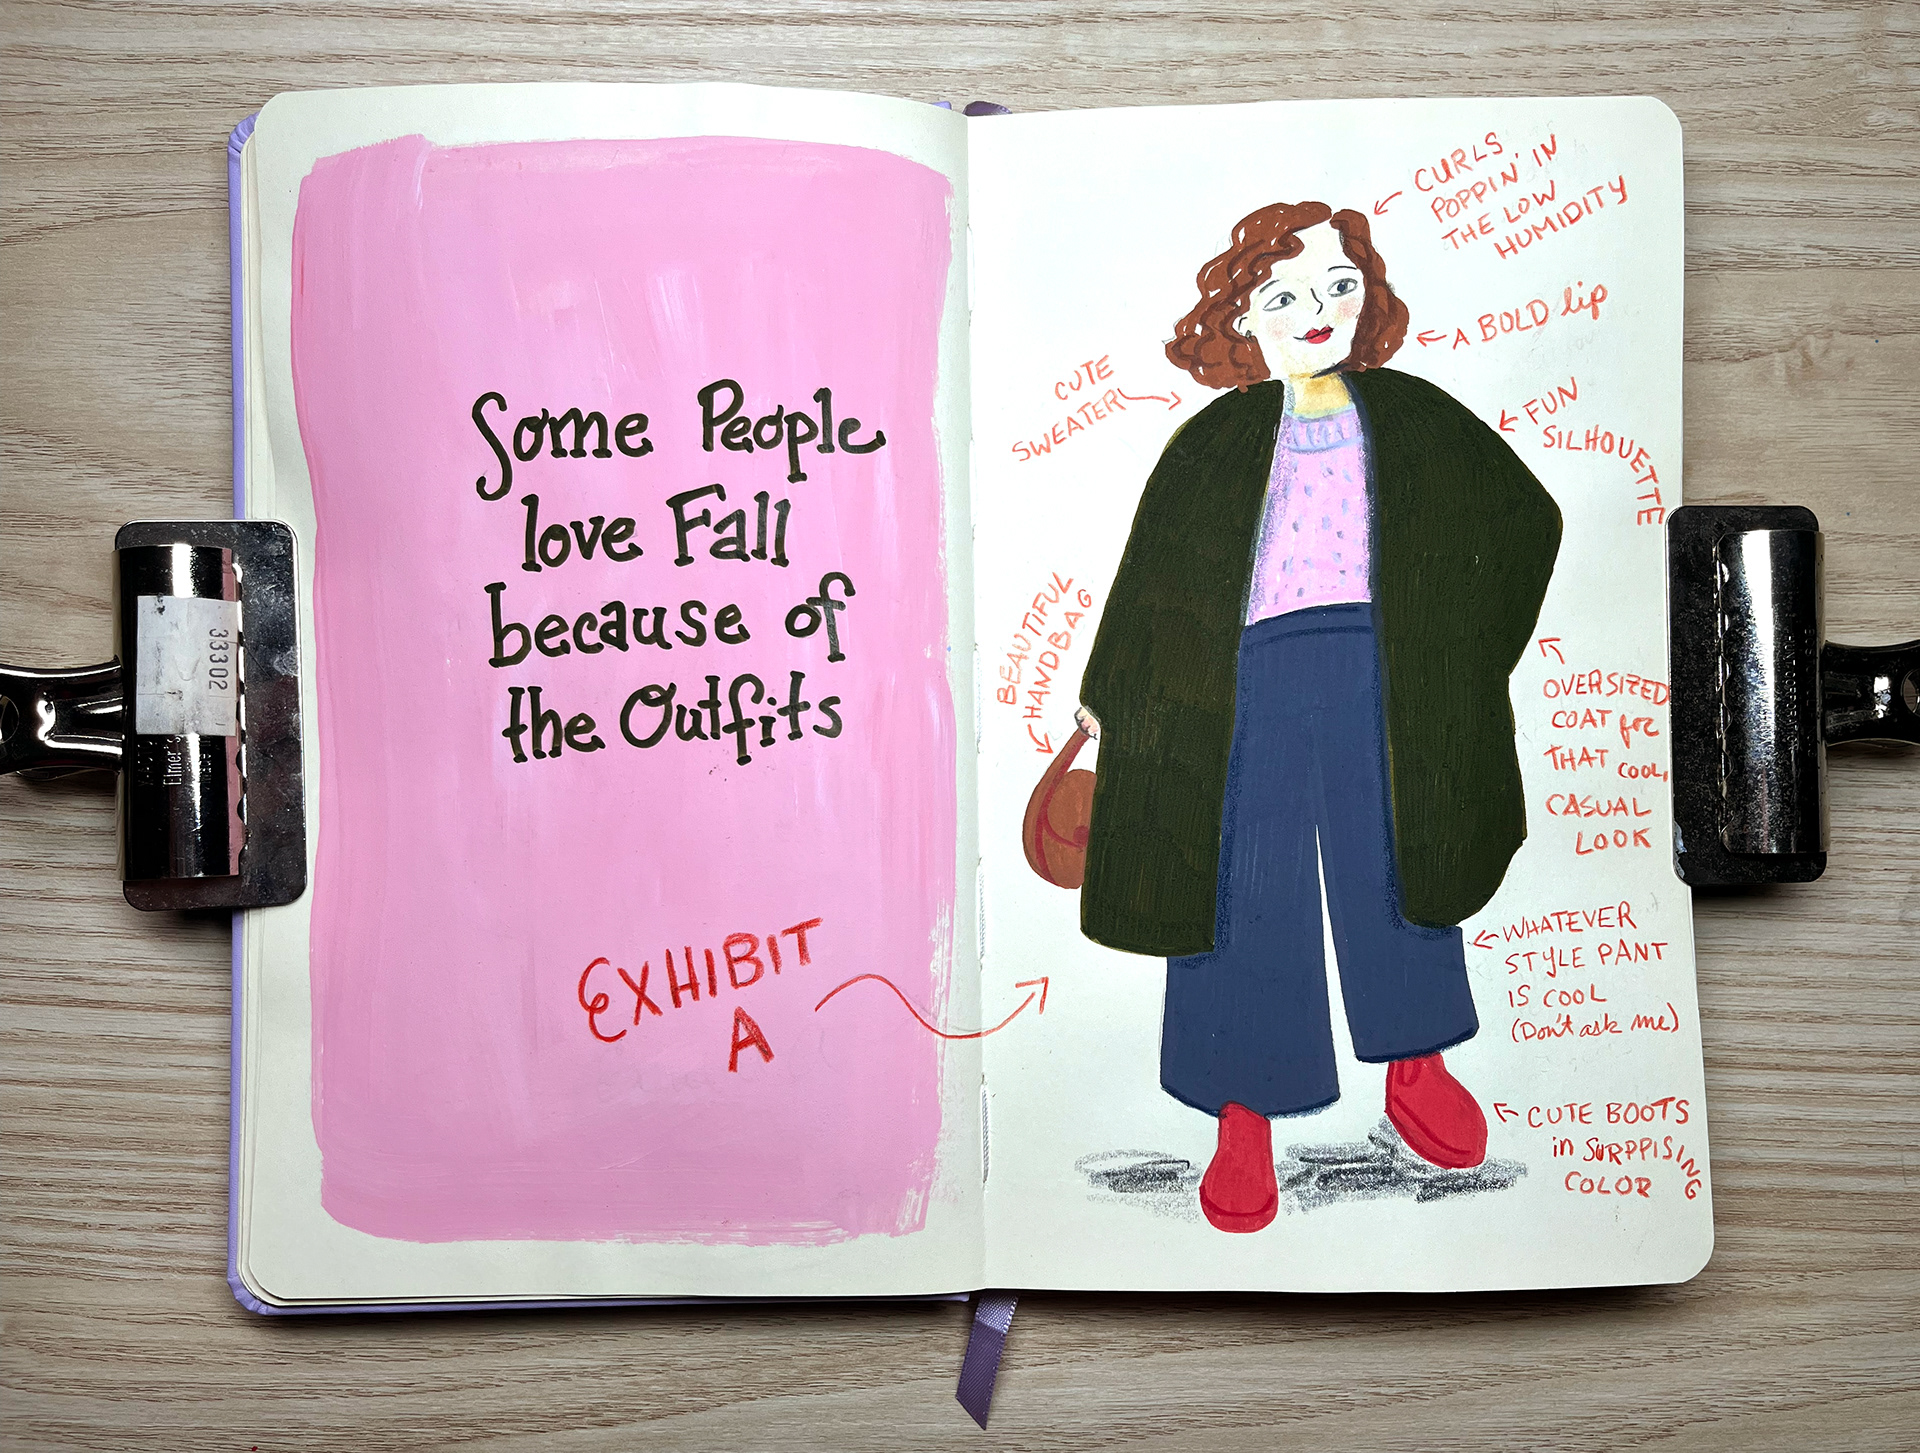 Some People
love Fall
because of
the Outfits
EXHIBIT
A
CURLS
POPPIN' IN
THE LOW
HUMIDITY
A BOLD lip
CUTE
SWEATER
FUN
SILHOUETTE
BEAUTIFUL
HANDBAG
OVERSIZED
COAT for
THAT COOL,
CASUAL
LOOK
WHATEVER
STYLE PANT
IS COOL
(Don't ask me)
CUTE BOOTS
in SURPPISING
COLOR
33302